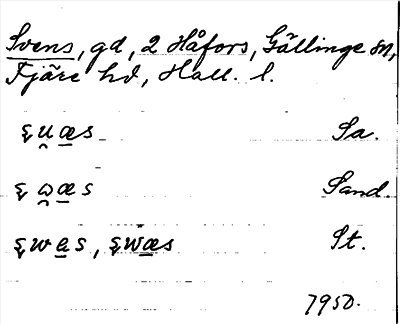 Svens, gd, 2 Håfors, Gällinge sn,
Fjäre hd, Hall. l.
ʂu̯æ̱s Sa.
ʂɷ̯æ̱s Sand.
ʂwa̱s, ʂwæ̱s St.
1950.